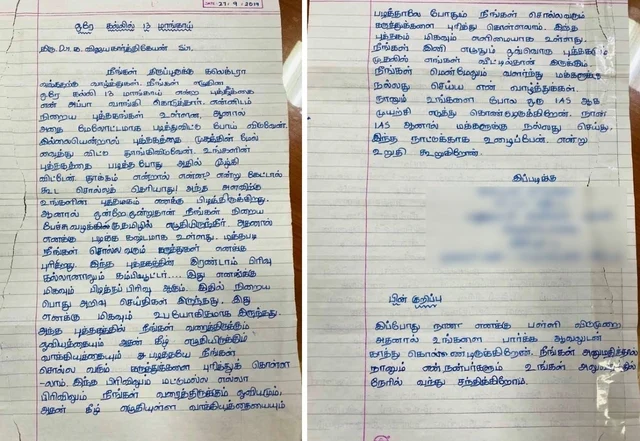 27.9.2019
ஒரே கல்லில் 13 மாங்காய்
திரு. Dr. க. விஜயகார்த்திகேயன் Sir,
நீங்கள் திருப்பூருக்கு கலெக்டரா
வந்ததுக்கு வாழ்த்துகள். நீங்கள் எழுதின
ஒரே கல்லில் 13 மாங்காய் என்ற புத்தகத்தை
என் அப்பா வாங்கி கொடுத்தார். என்னிடம்
நிறைய புத்தகங்கள் உள்ளன, ஆனால்
அதை மேலோட்டமாக படித்துவிட்டு போய் விடுவேன்.
இல்லையென்றால் புத்தகத்தை முகத்தின் மேல்
வைத்து விட்டு தூங்கிவிடுவேன். உங்களின்
புத்தகத்தை படித்த போது அதில் மூழ்கி
விட்டேன். தூக்கம் என்றால் என்ன? என்று கேட்டால்
கூட சொல்லத் தெரியாது! அந்த அளவிற்கு
உங்களின் புத்தகம் எனக்கு பிடித்திருக்கிறது.
ஆனால் ஒன்றே ஒன்றுதான் நீங்கள் நிறைய
பேச்சு வழக்கில் தமிழில் எழுதியிருந்தீர். அதனால்
எனக்கு படிக்க கஷ்டமாக உள்ளது. படித்தபடி
நீங்கள் சொல்ல வரும் கருத்துகள் எனக்கு
புரிந்தது. இந்த புத்தகத்தின் இரண்டாம் பிரிவு
கல்லானாலும் கம்பியூட்டர்.... இது எனக்கு
மிகவும் பிடித்தப் பிரிவு ஆகும். இதில் நிறைய
பொது அறிவு செய்திகள் இருந்தது. இது
எனக்கு மிகவும் உபயோகிதமாக இருந்தது.
அந்த புத்தகத்தில் நீங்கள் வரைந்திருக்கும்
ஓவியத்தையும் அதன் கீழ் எழுதியிருக்கும்
வார்த்தையையும் படித்தாலே நீங்கள்
சொல்ல வரும் கருத்துகளை புரிந்துக் கொள்ள
-லாம். இந்த பிரிவிலும் மட்டுமல்ல எல்லா
பிரிவிலும் நீங்கள் வரைந்திருக்கும் ஓவியமும்,
அதன் கீழ் எழுதியுள்ள வார்த்தையையும்
படித்தாலே போதும் நீங்கள் சொல்லவரும்
கருத்துக்களை புரிந்து கொள்ளலாம். இந்த
புத்தகம் மிகவும் எளிமையாக உள்ளது.
நீங்கள் இனி எழுதும் ஒவ்வொரு புத்தகமும்
முதலில் எங்கள் வீட்டில்தான் இருக்கும்.
நீங்கள் மென்மேலும் வளர்ந்து மக்களுக்கு
நல்லது செய்ய என் வாழ்த்துகள்.
நானும் உங்களை போல ஒரு IAS ஆக
முயற்சி எடுத்து கொண்டிருக்கிறேன். நான்
IAS ஆனால் மக்களுக்கு நல்லது செய்து,
இந்த நாட்டுக்காக உழைப்பேன். என்று
உறுதி கூறுகிறேன்.
இப்படிக்கு
பின் குறிப்பு
இப்போது நான் எனக்கு பள்ளி விடுமுறை
அதனால் உங்களை பார்க்க ஆவலுடன்
காத்து கொண்டிருக்கிறேன். நீங்கள் அனுமதித்தால்
நானும் என் நண்பர்களும் உங்கள் அலுவலகத்தில்
நேரில் வந்து சந்திக்கிறோம்.